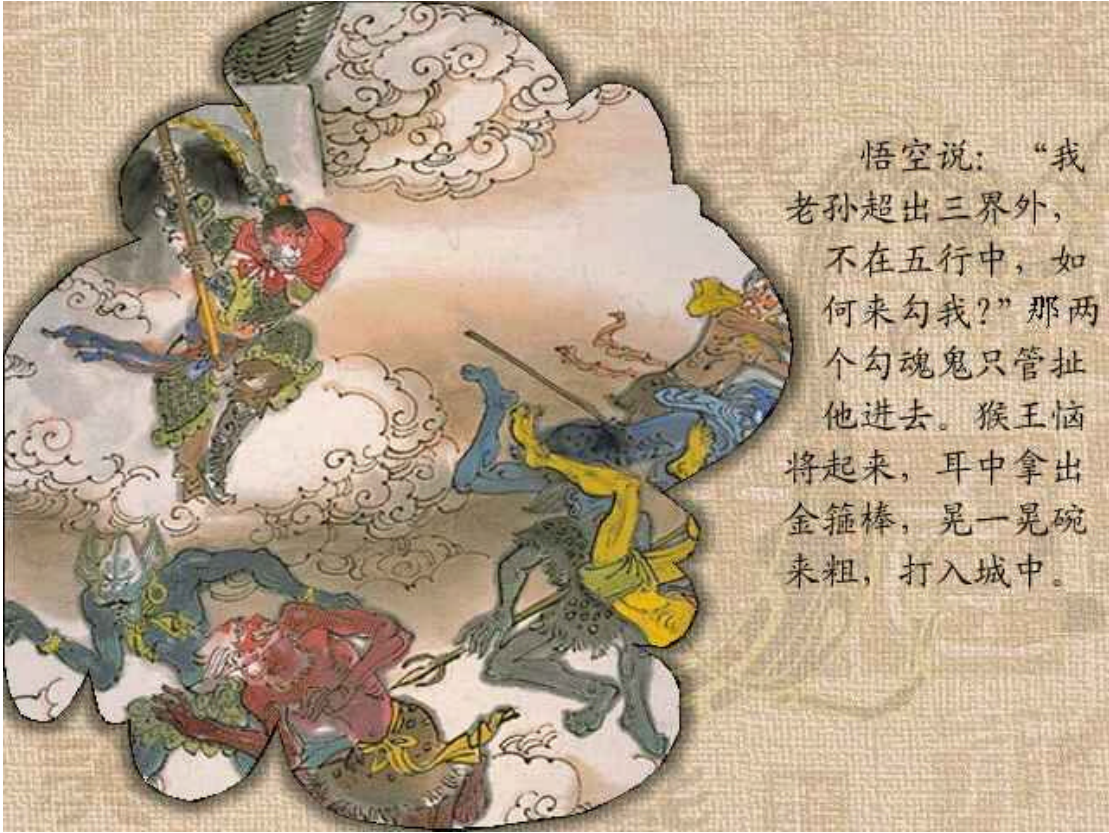 悟空说：“我
老孙超出三界外，
不在五行中，如
何来勾我？”那两
个勾魂鬼只管扯
他进去。猴王恼
将起来，耳中拿出
金箍棒，晃一晃碗
来粗，打入城中。